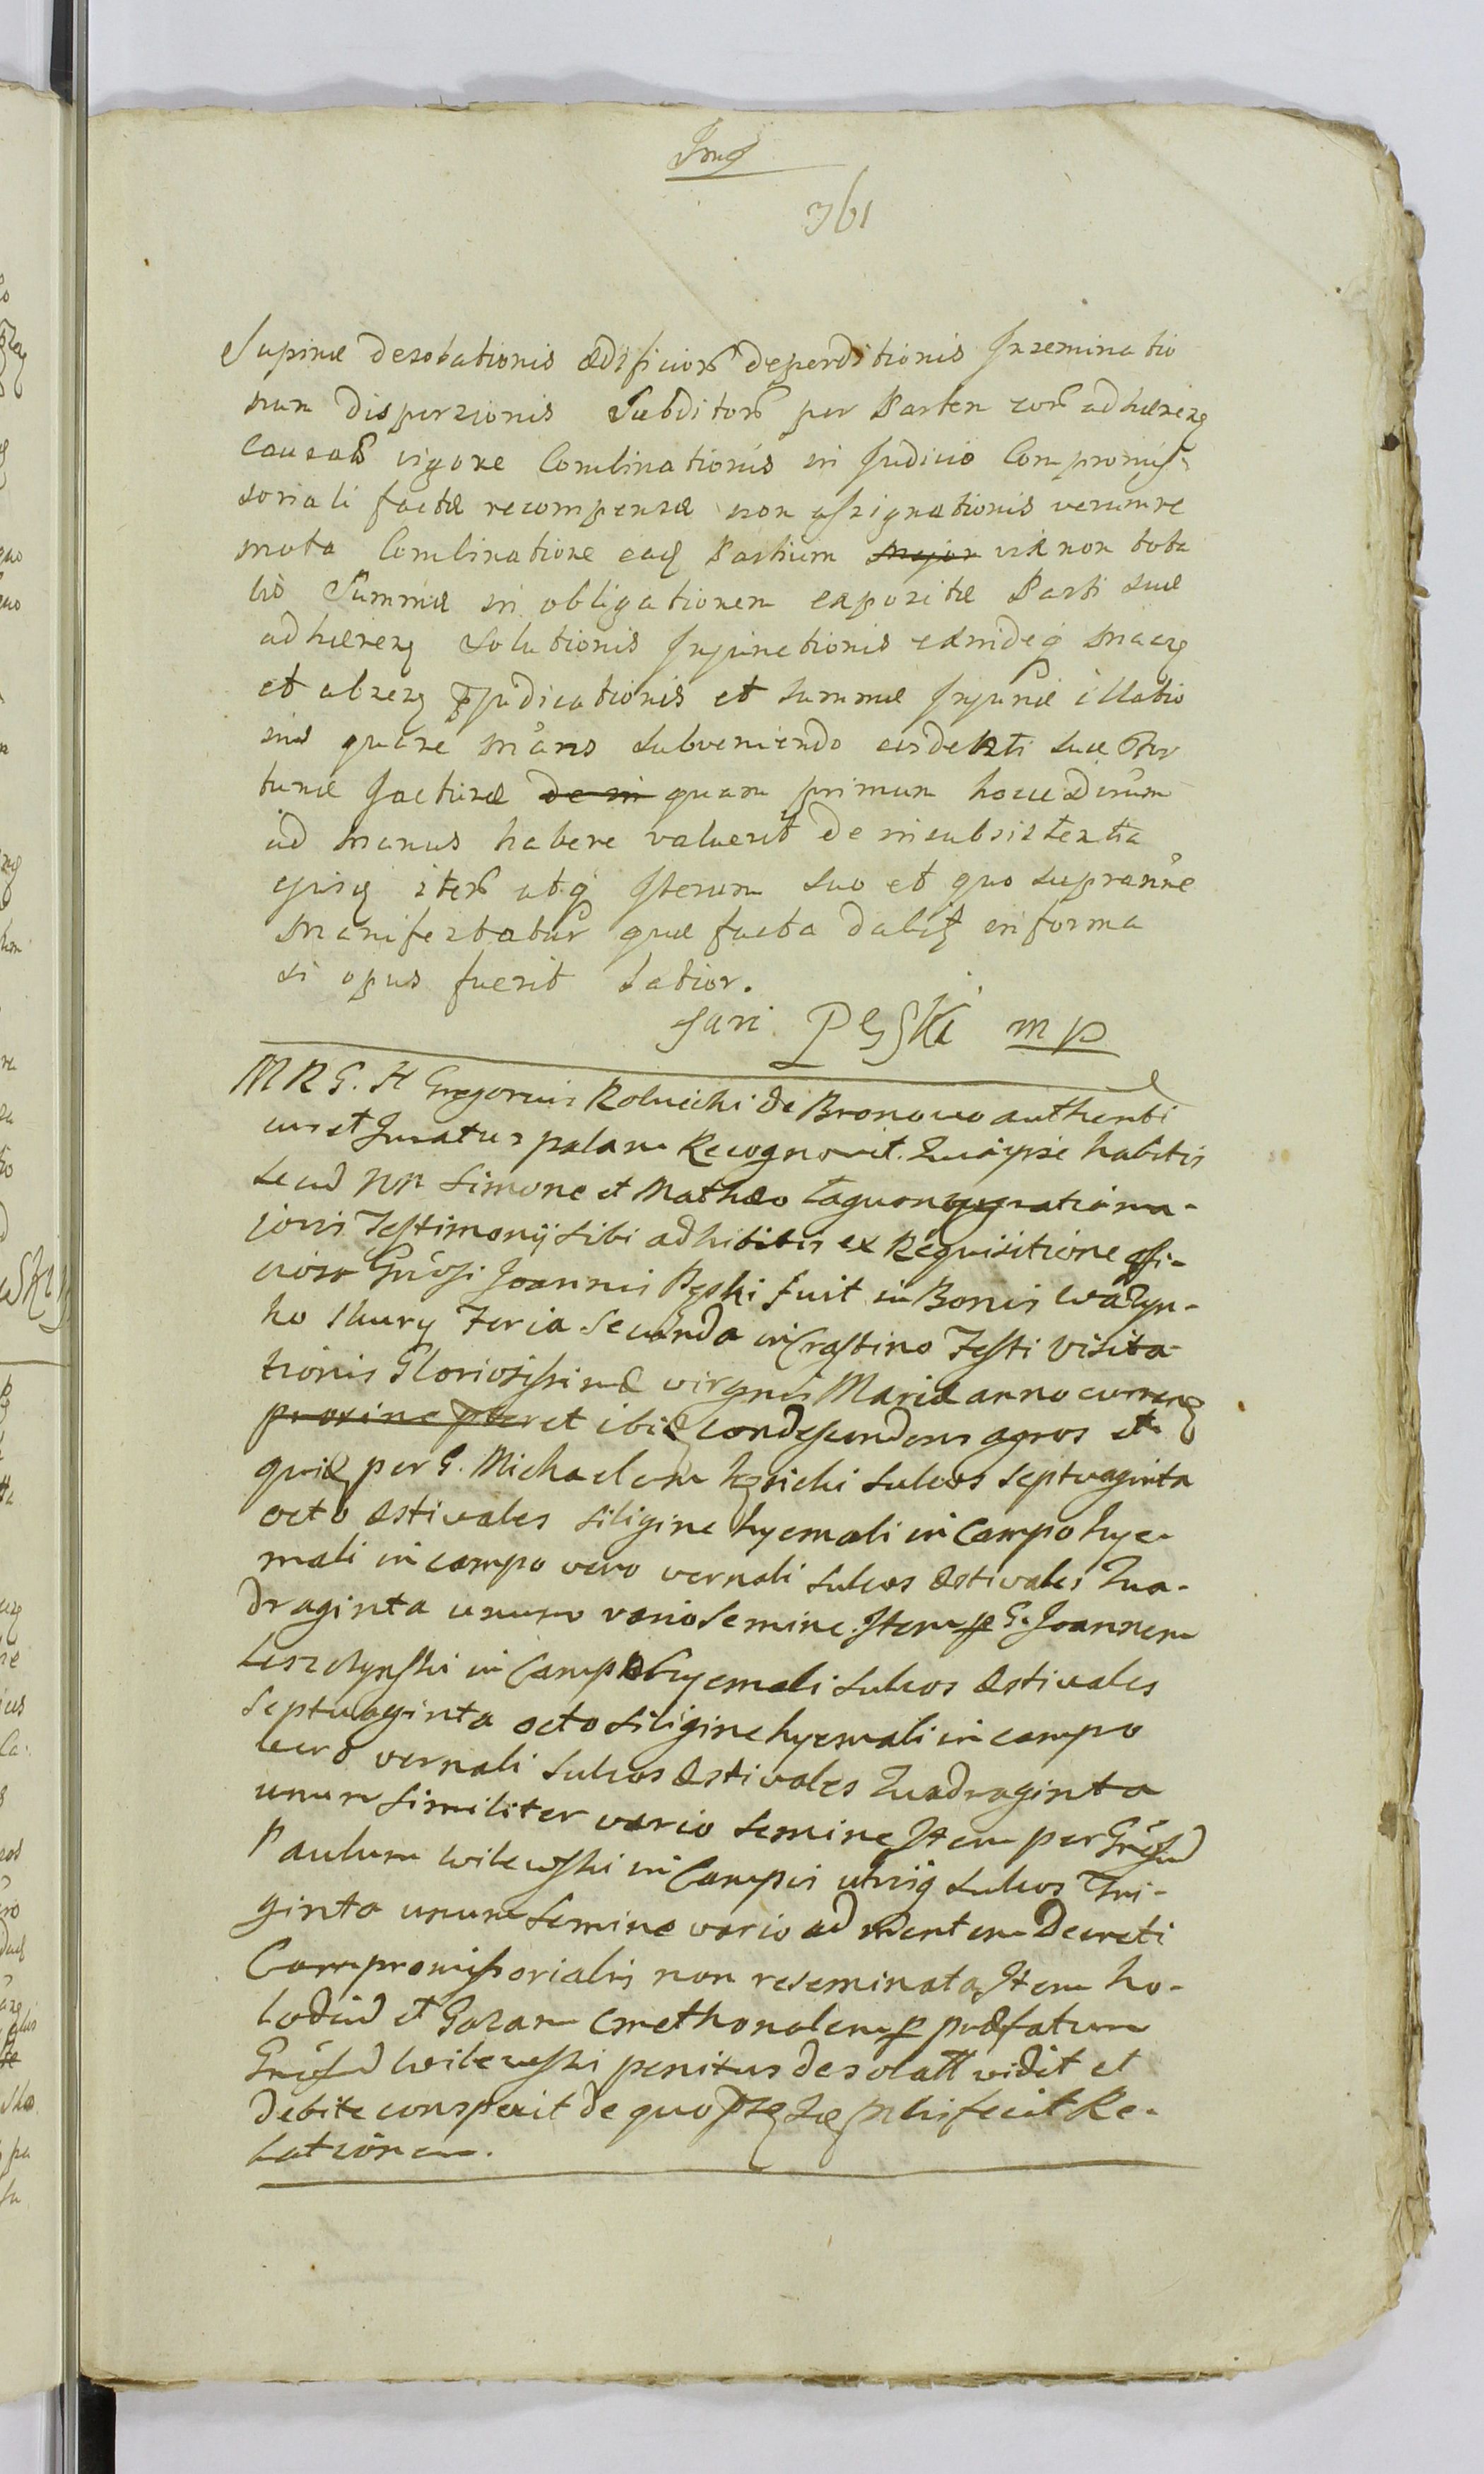 361
Supinæ desolationis ædificiorũ deperditionis Inseminatio
num dispersionis Subditorũ per Partem eorũ adhæreng
causatũ vigore Combinationis in Judicio Compromis-
soriali factæ recompensæ non assignationis verum re
mota Combinatione eaq Partium <s>major</s> via non tota
lis Summæ in obligationem expositæ Parti suæ
adhæreng Solutionis Injunctionis
et adjudicationis et summæ Injuriæ illatio
nis quare subveniendo suæ For
tunæ Jacturæ <s>de in</s> quam primum
ad manus habere valuerit de insubsistentia
ejusq iterũ atq Iterum suo et quo supra nñe
manifestatur quæ facta dabit in forma
si opus fuerit latior.
Jan Pęski mp
MRG. H Gregorius Rolnicki de Bronowo authenti
cus et Juratus palam Recognovit. Quia ipse habitis
secũ NN Simone et Mathæo ratio ma-
joris Testimonij sibi adhibitis ex Requisitione offi-
ciosa Gñosi Joannis Pęski fuit in Bonis Wadzyn-
ho Skury Feria Secunda in Crastino Festi Visita-
tionis Gloriosissimæ virginis Mariæ anno curreng
<s>proxime præter</s> et ibidę condescendens agros et
quidę per G. Michaelem sulcos septuaginta
octo æstivales siligine hyemali in Campo hye-
mali in campo vero vernali sulcos æstivales Qua-
draginta unum vario Semine. Item per G. Joannem
Leszczynski in Campo hyemali sulcos æstivales
Septuaginta octo siligine hyemali in campo
vero vernali sulcos æstivales Quadraginta
unum similiter vario semine Item per Gñosũ
Paulum Wilewski in Campis utrisq sulcos Tri-
ginta unum semine vario ad mentem Decreti
Compromissorialis non reseminata Item ho-
lodiũ et Gazam Cmethonalem per præfatum
Gñosũ Wilewski penitus desolatũ vidit et
debite conspexit de quo fecit Re-
lationem.